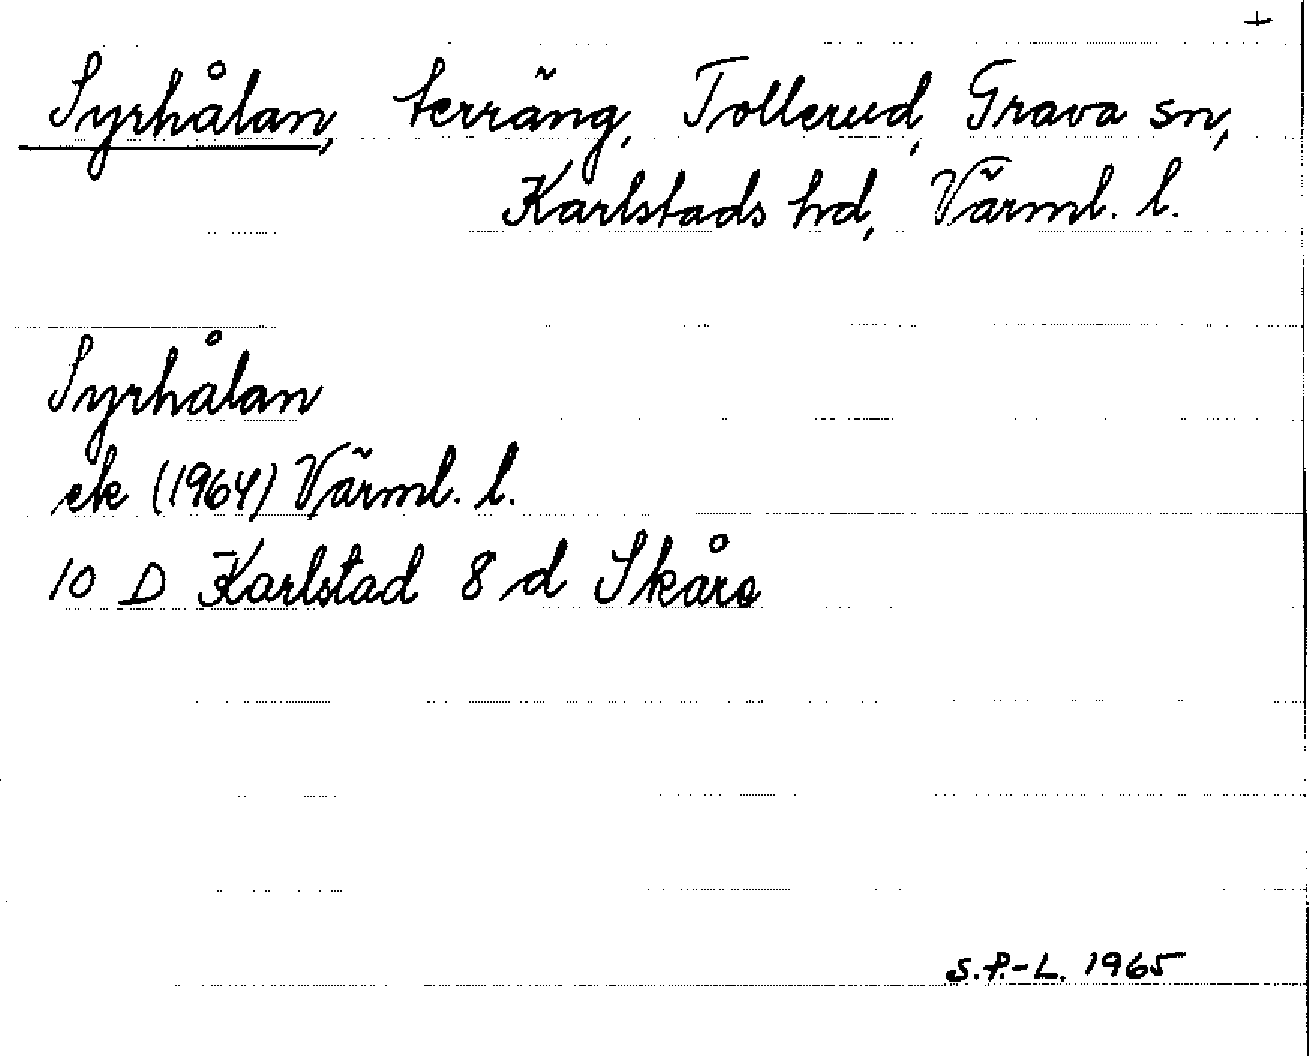 +
Syrhålan, terräng, Tollerud, Grava sn,
Karlstads hd, Värml. l.
Syrhålan
ek (1964) Värml. l.
10 D Karlstad 8 d Skåre
S.P.-L. 1965